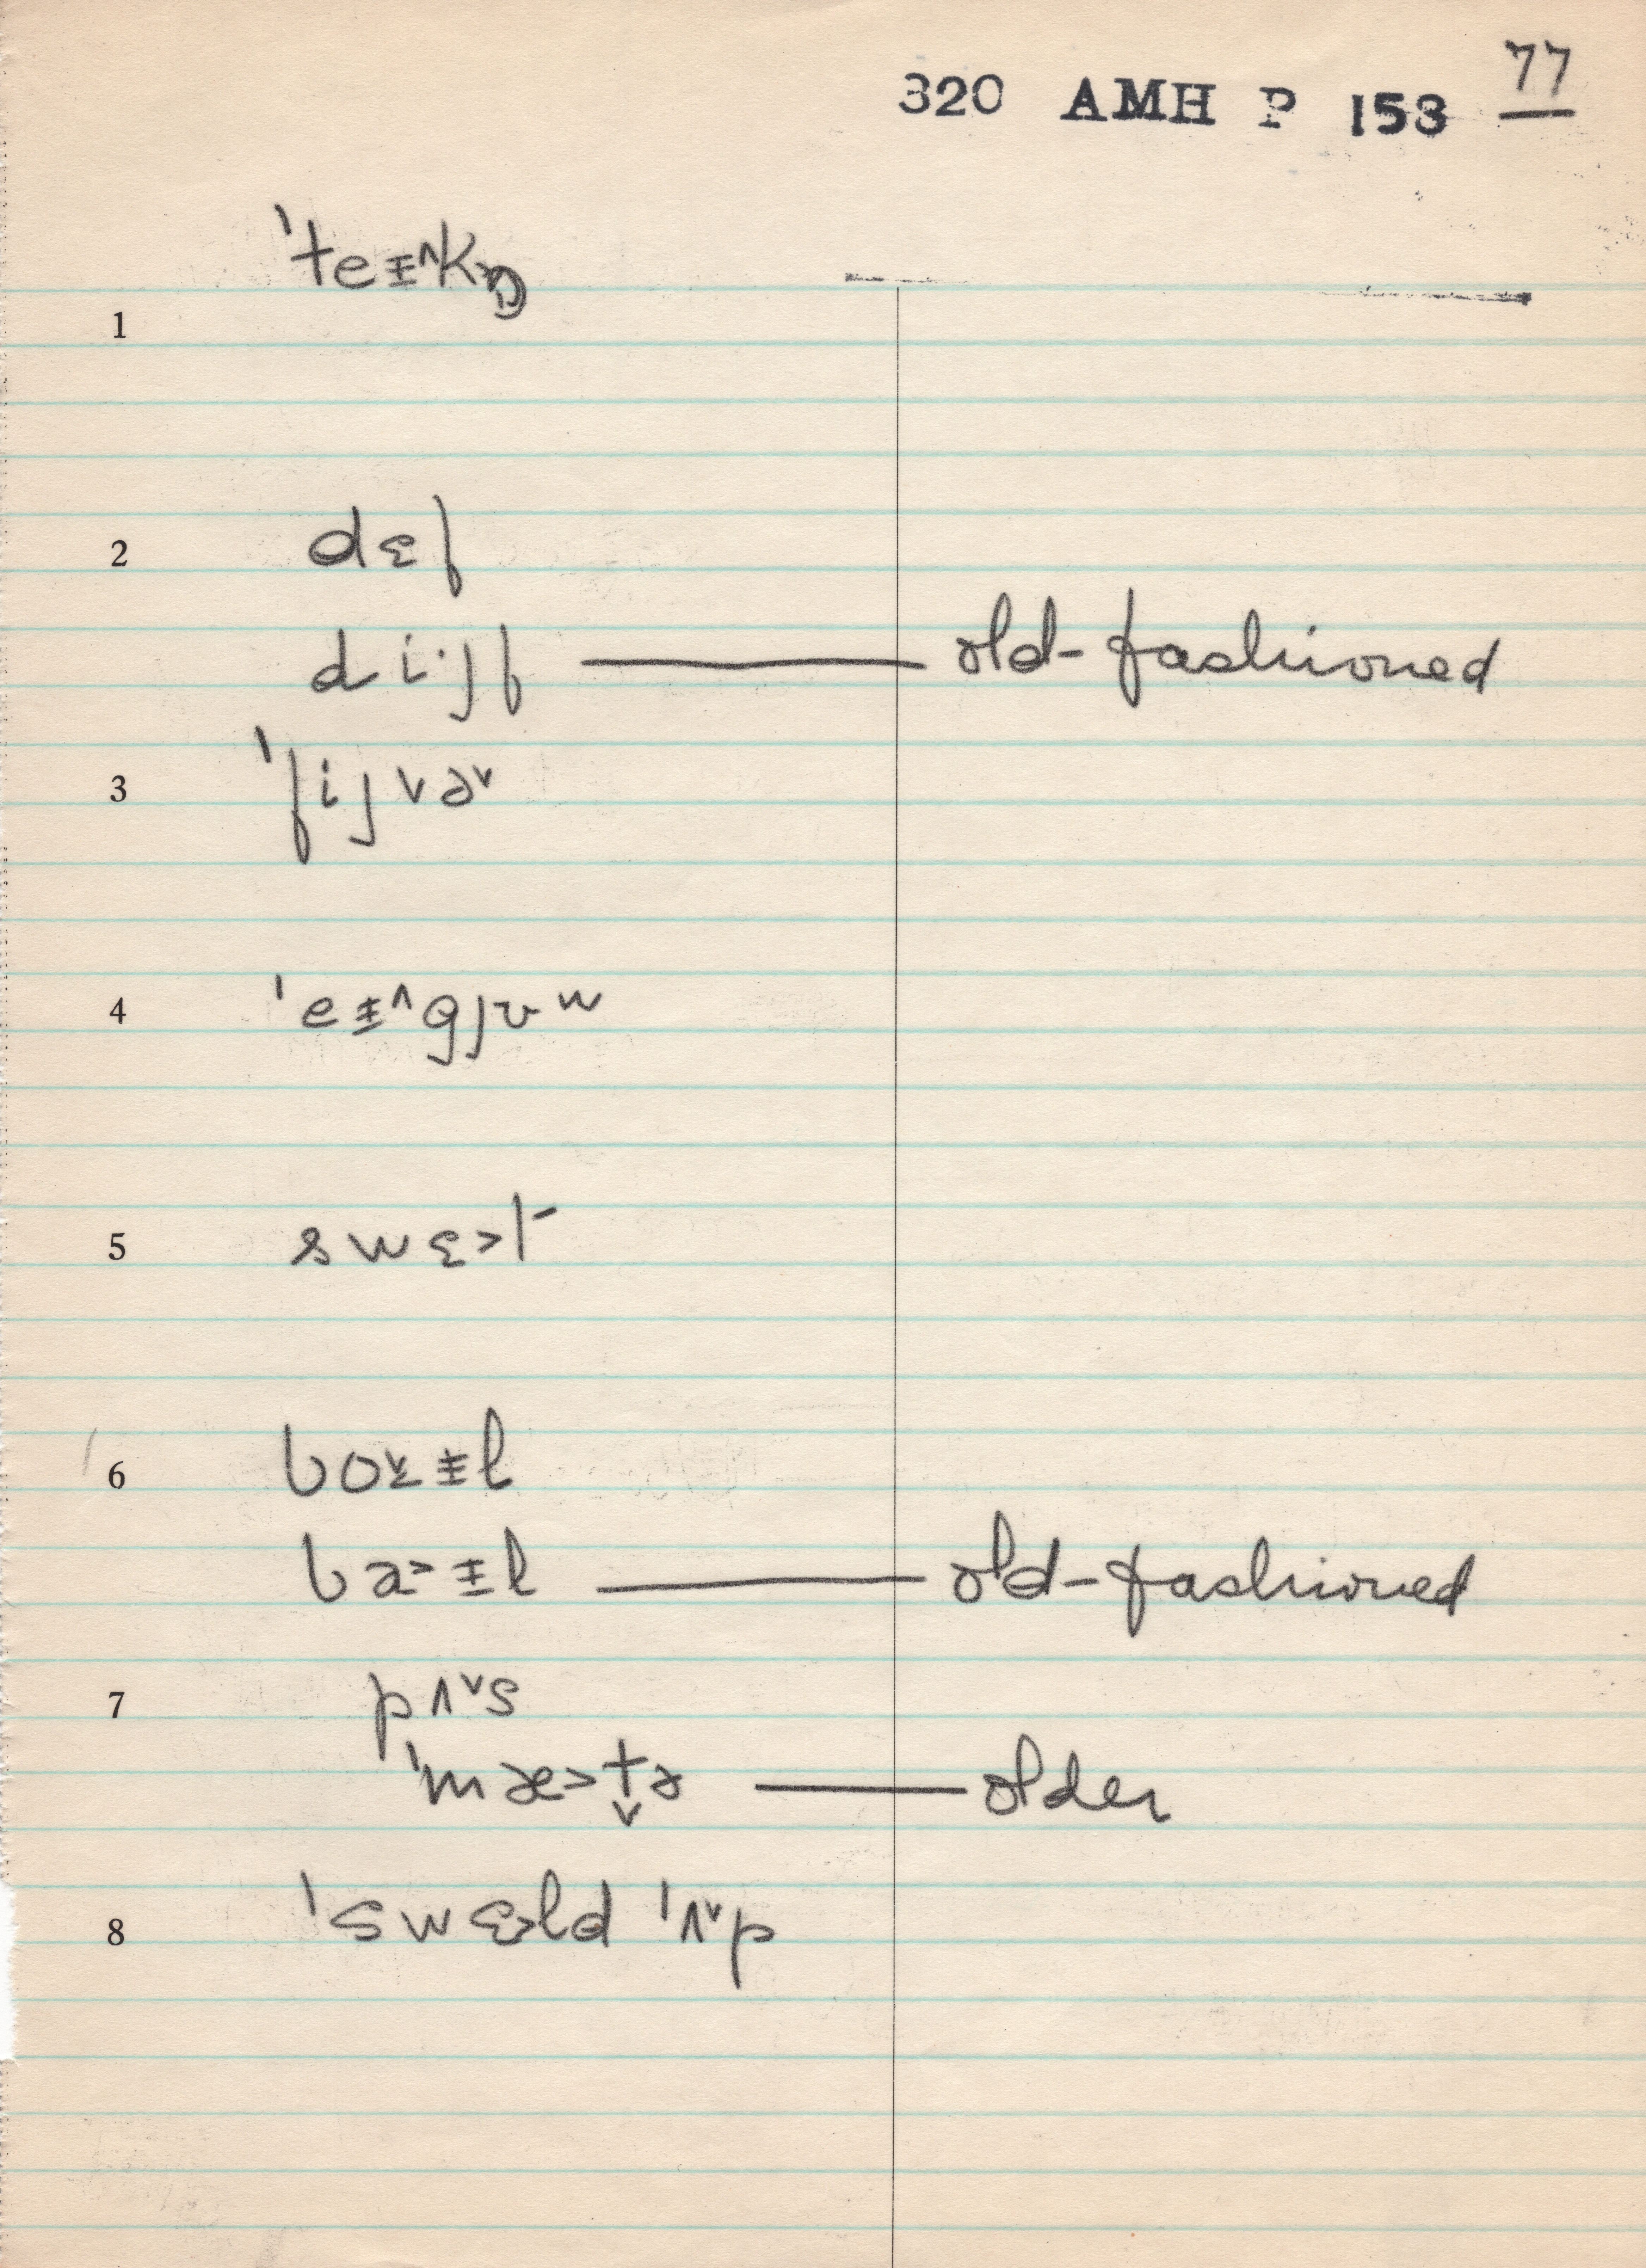 77
320 AMH P 153
1 ˈteᵻ^kŋ̩
2 dɛf
di·jf — old-fashioned
3 ˈfijvə˅
4 ˈeᵻ^gjʊʷ
5 swɛ>t-
6 bo˅ᵻl
ba>ᵻl — old-fashioned
7 pʌ˅s
ˈmæ>t̬ə — older
8 ˈswɛ>ld ˈʌ˅p